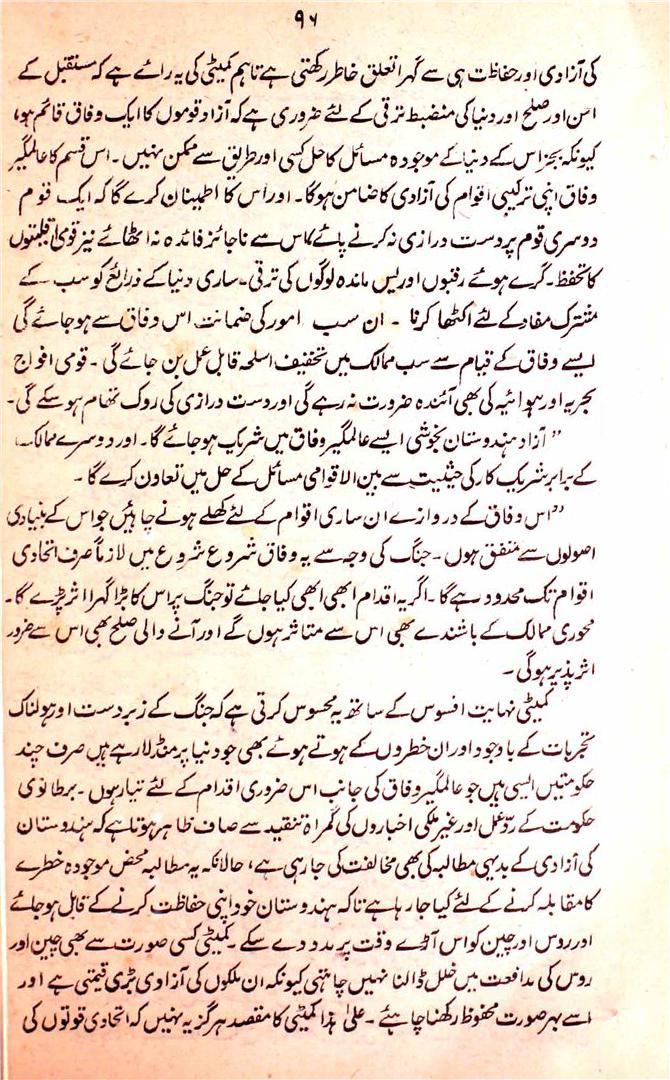 ۹۶
کی آزادی اور حفاظت ہی سے گہرا تعلق خاطر رکھتی ہے تاہم کمیٹی کی یہ رائے ہے کہ مستقبل کے
امن اور صلح اور دنیا کی منضبط ترقی کے لئے ضروری ہے کہ آزاد قوموں کا ایک وفاق قائم ہو،
کیونکہ بجز اس کے دنیا کے موجودہ مسائل کا حل کسی اور طریق سے ممکن نہیں۔ اس قسم کا عالمگیر
وفاق اپنی ترکیبی اقوام کی آزادی کا ضامن ہوگا۔ اور اس کا اطمینان کرے گا کہ ایک قوم
دوسری قوم پر دست درازی نہ کرنے پائے اس سے ناجائز فائدہ نہ اٹھائے نیز قومی اقلیتوں
کا تحفظ۔ گرے ہوئے رقبوں اور پس ماندہ لوگوں کی ترقی۔ ساری دنیا کے ذرائع کو سب کے
مشترک مفاد کے لئے اکٹھا کرنا ۔ ان سب امور کی ضمانت اس وفاق سے ہو جائے گی
ایسے وفاق کے قیام سے سب ممالک میں تخفیف اسلحہ قابل عمل بن جائے گی ۔ قومی افواج
بحریہ اور ہوائیہ کی بھی آئندہ ضرورت نہ رہے گی اور دست درازی کی روک تھام ہو سکے گی۔
”آزاد ہندوستان بخوشی ایسے عالمگیر وفاق میں شریک ہو جائے گا۔ اور دوسرے ممالک
کے برابر شریک کار کی حیثیت سے بین الاقوامی مسائل کے حل میں تعاون کرے گا ۔
”اس وفاق کے دروازے ان ساری اقوام کے لئے کھلے ہونے چاہئیں جو اس کے بنیادی
اصولوں سے متفق ہوں ۔ جنگ کی وجہ سے یہ وفاق شروع شروع میں لازماً صرف اتحادی
اقوام تک محدود رہے گا ۔ اگر یہ اقدام ابھی ابھی کیا جائے تو جنگ پر اس کا بڑا گہرا اثر پڑے گا۔
محوری ممالک کے باشندے بھی اس سے متاثر ہوں گے اور آنے والی صلح بھی اس سے ضرور
اثر پذیر ہوگی ۔
کمیٹی نہایت افسوس کے ساتھ یہ محسوس کرتی ہے کہ جنگ کے زبردست اور ہولناک
تجربات کے باوجود اور ان خطروں کے ہوتے ہوئے بھی جو دنیا پر منڈلا رہے ہیں صرف چند
حکومتیں ایسی ہیں جو عالمگیر وفاق کی جانب اس ضروری اقدام کے لئے تیار ہوں ۔ برطانوی
حکومت کے ردِ عمل اور غیر ملکی اخباروں کی گمراہ تنقید سے صاف ظاہر ہوتا ہے کہ ہندوستان
کی آزادی کے بدیہی مطالبہ کی بھی مخالفت کی جا رہی ہے، حالانکہ یہ مطالبہ محض موجودہ خطرے
کا مقابلہ کرنے کے لئے کیا جا رہا ہے تاکہ ہندوستان خود اپنی حفاظت کرنے کے قابل ہو جائے
اور روس اور چین کو اس آڑے وقت پر مدد دے سکے ۔ کمیٹی کسی صورت سے بھی چین اور
روس کی مدافعت میں خلل ڈالنا نہیں چاہتی کیونکہ ان ملکوں کی آزادی بڑی قیمتی ہے اور
اسے بہر صورت محفوظ رکھنا چاہئے ۔ علیٰ ہذا کمیٹی کا مقصد ہرگز یہ نہیں کہ اتحادی قوتوں کی